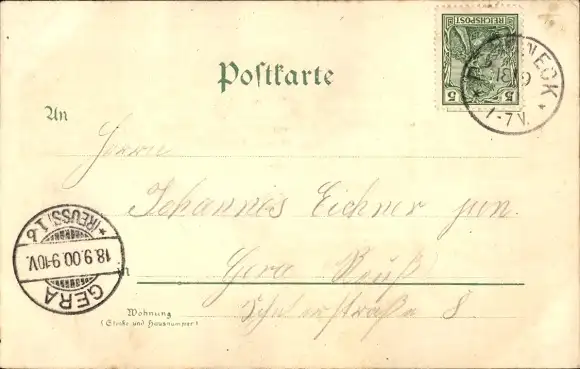 REICHSPOST
5 5
18 9
7-7V.
Postkarte
An
Herrn
Johannes Eichner jun.
GERA
18.9.00. 9-10V.
*(REUSS) 1 b
in
Gera Reuß
Schulerstraße 8.
Wohnung
(Straße und Hausnummer)